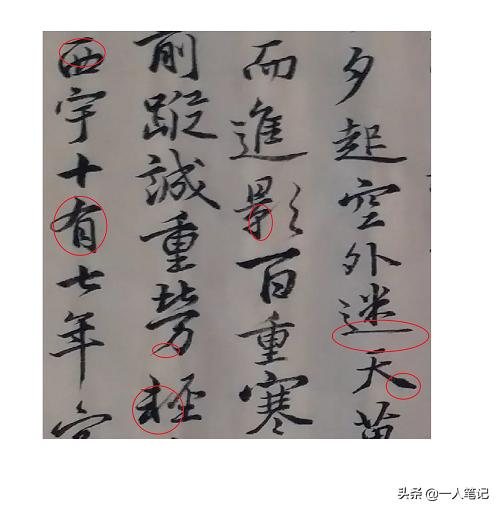 夕起空外迷天萬
而進影百重寒
前蹤誠重勞輕
西宇十有七年
头条 @一人笔记